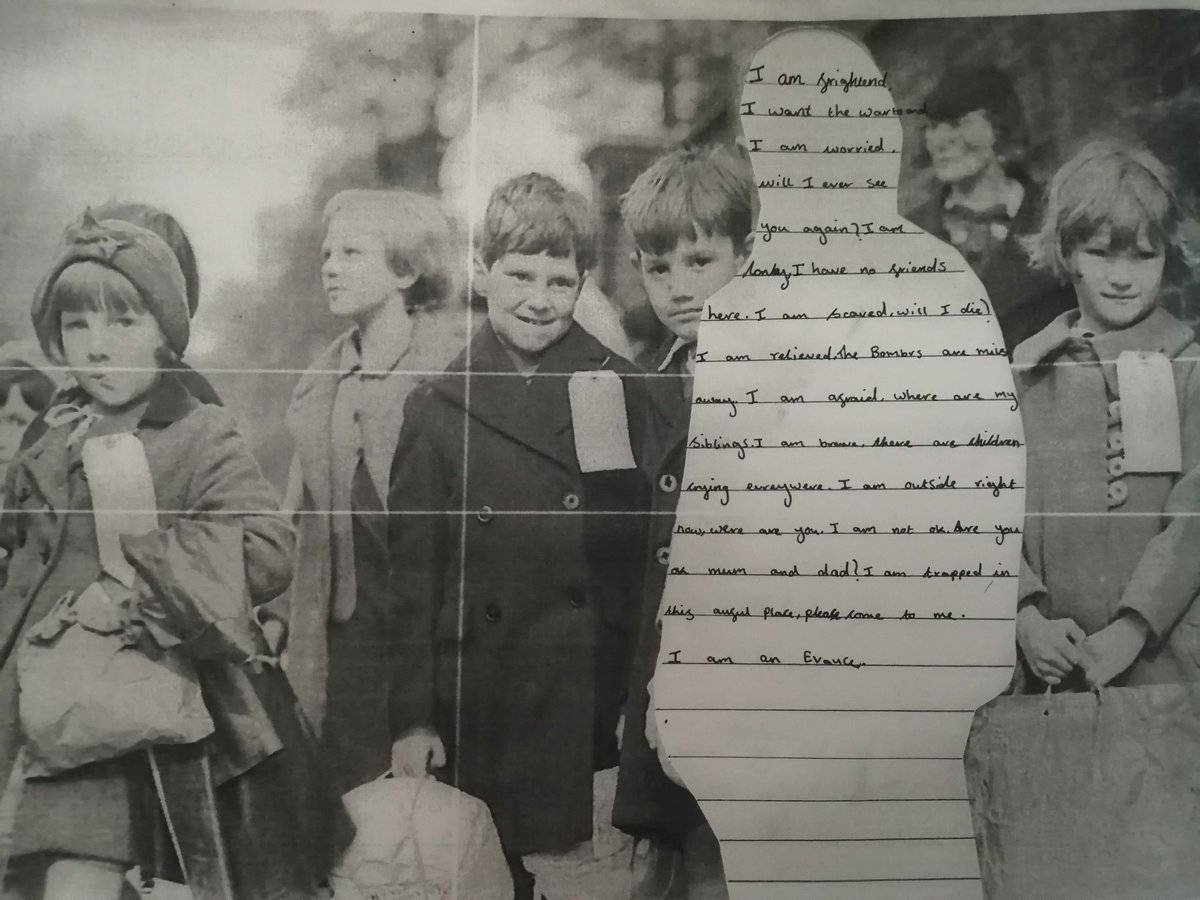 I am frightend.
I want the war to end
I am worried.
will I ever see
you again? I am
lonley, I have no friends
here. I am scared, will I die?
I am relieved, the Bombrs are miles
away. I am afraid, where are my
siblings. I am brave, there are children
crying evreywere. I am outside right
now, were are you. I am not ok. Are you
ok mum and dad? I am trapped in
this awful place, please come to me.
I am an Evauce.